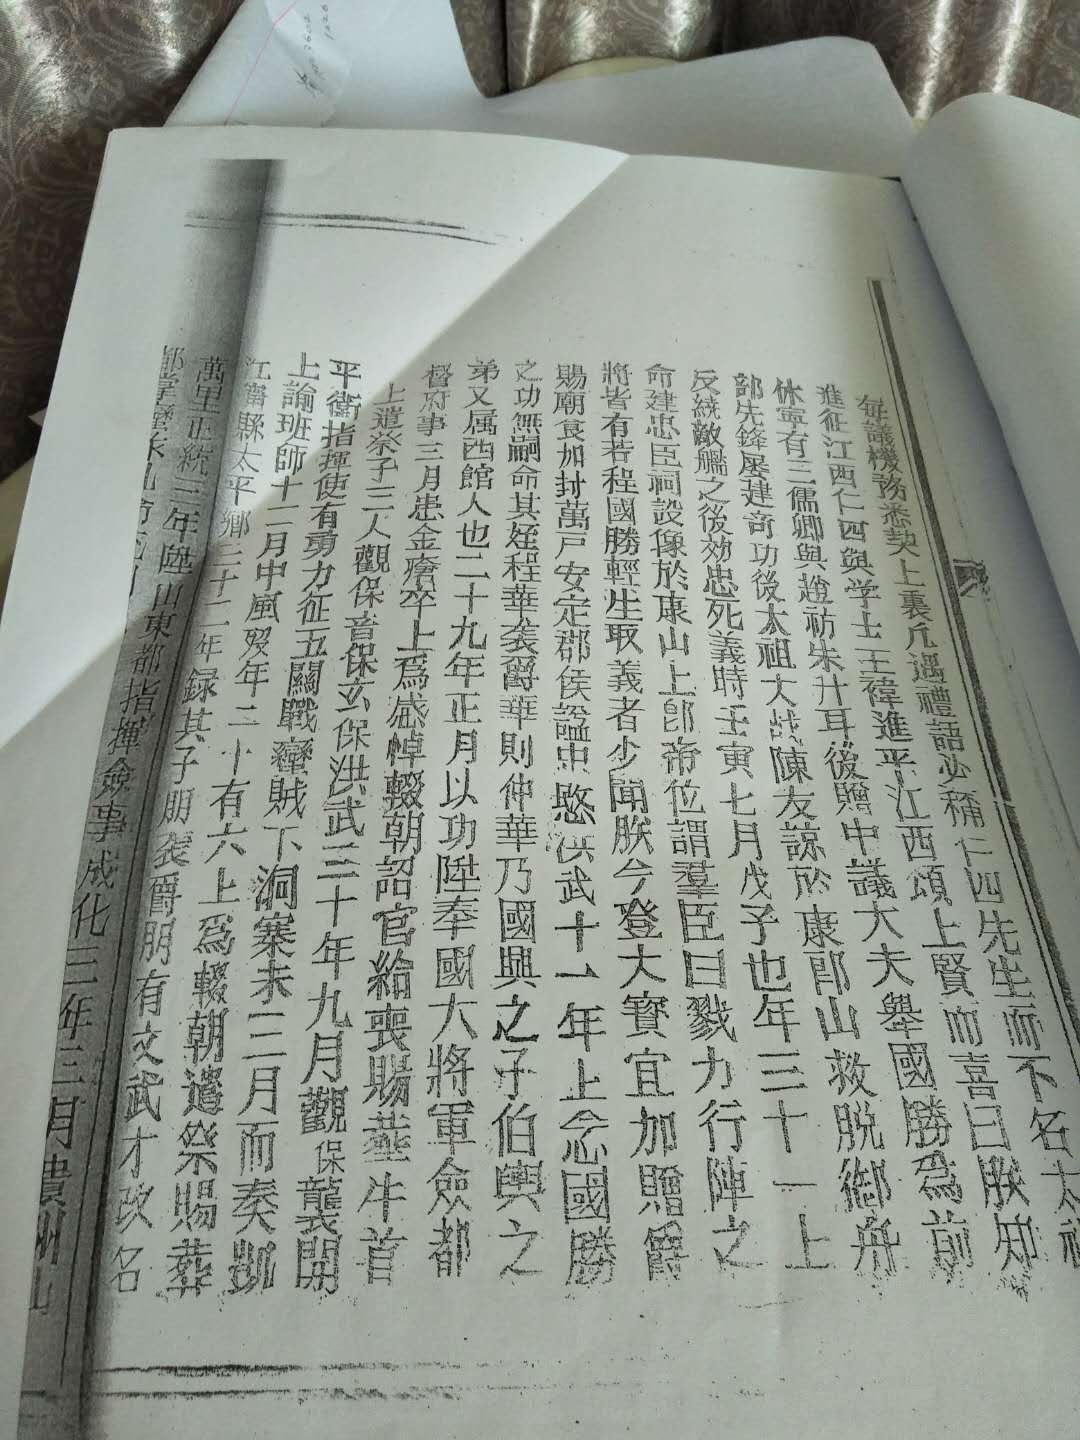 每議機務悉契上裏凡遇禮語必稱仁四先生而不名太祖
進征江西仁四與学士王禕進平江西頌上賢而喜曰朕知
休寧有三儒卿與趙汸朱升耳後贈中議大夫舉國勝為前
部先鋒屡建奇功後太祖大战陳友諒於康郎山救脱御舟
反繞敵艦之後効忠死義時壬寅七月戊子也年三十一上
命建忠臣祠設像於康山上即帝位謂羣臣曰戮力行陣之
將皆有若程國勝輕生取義者少聞朕今登大寶宜加贈爵
賜廟食加封萬戸安定郡侯謚忠愍洪武十一年上念國勝
之功無嗣命其姪程華袭爵華則仲華乃國興之子伯輿之
弟又属西館人也二十九年正月以功陞奉國大將軍僉都
督府事三月患金瘡卒上爲感悼輟朝詔官給喪賜塟牛首
上遣祭子三人觀保音保玄保洪武三十年九月觀保襲開
平衛指揮使有勇力征五關戰蠻賊下洞寨未三月而奏凱
上諭班師十二月中風殁年二十有六上爲輟朝遣祭賜葬
江寧縣太平鄉三十二年録其子朋袭爵朋有文武才政名
萬里正統三年陞山東都指揮僉事成化三年三月貴州山